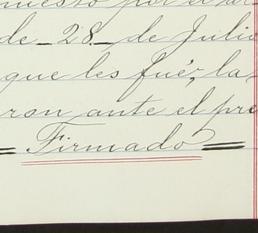 puesto por el ar
de 28 de Julio
que les fué, la
ron ante el pre
Firmado